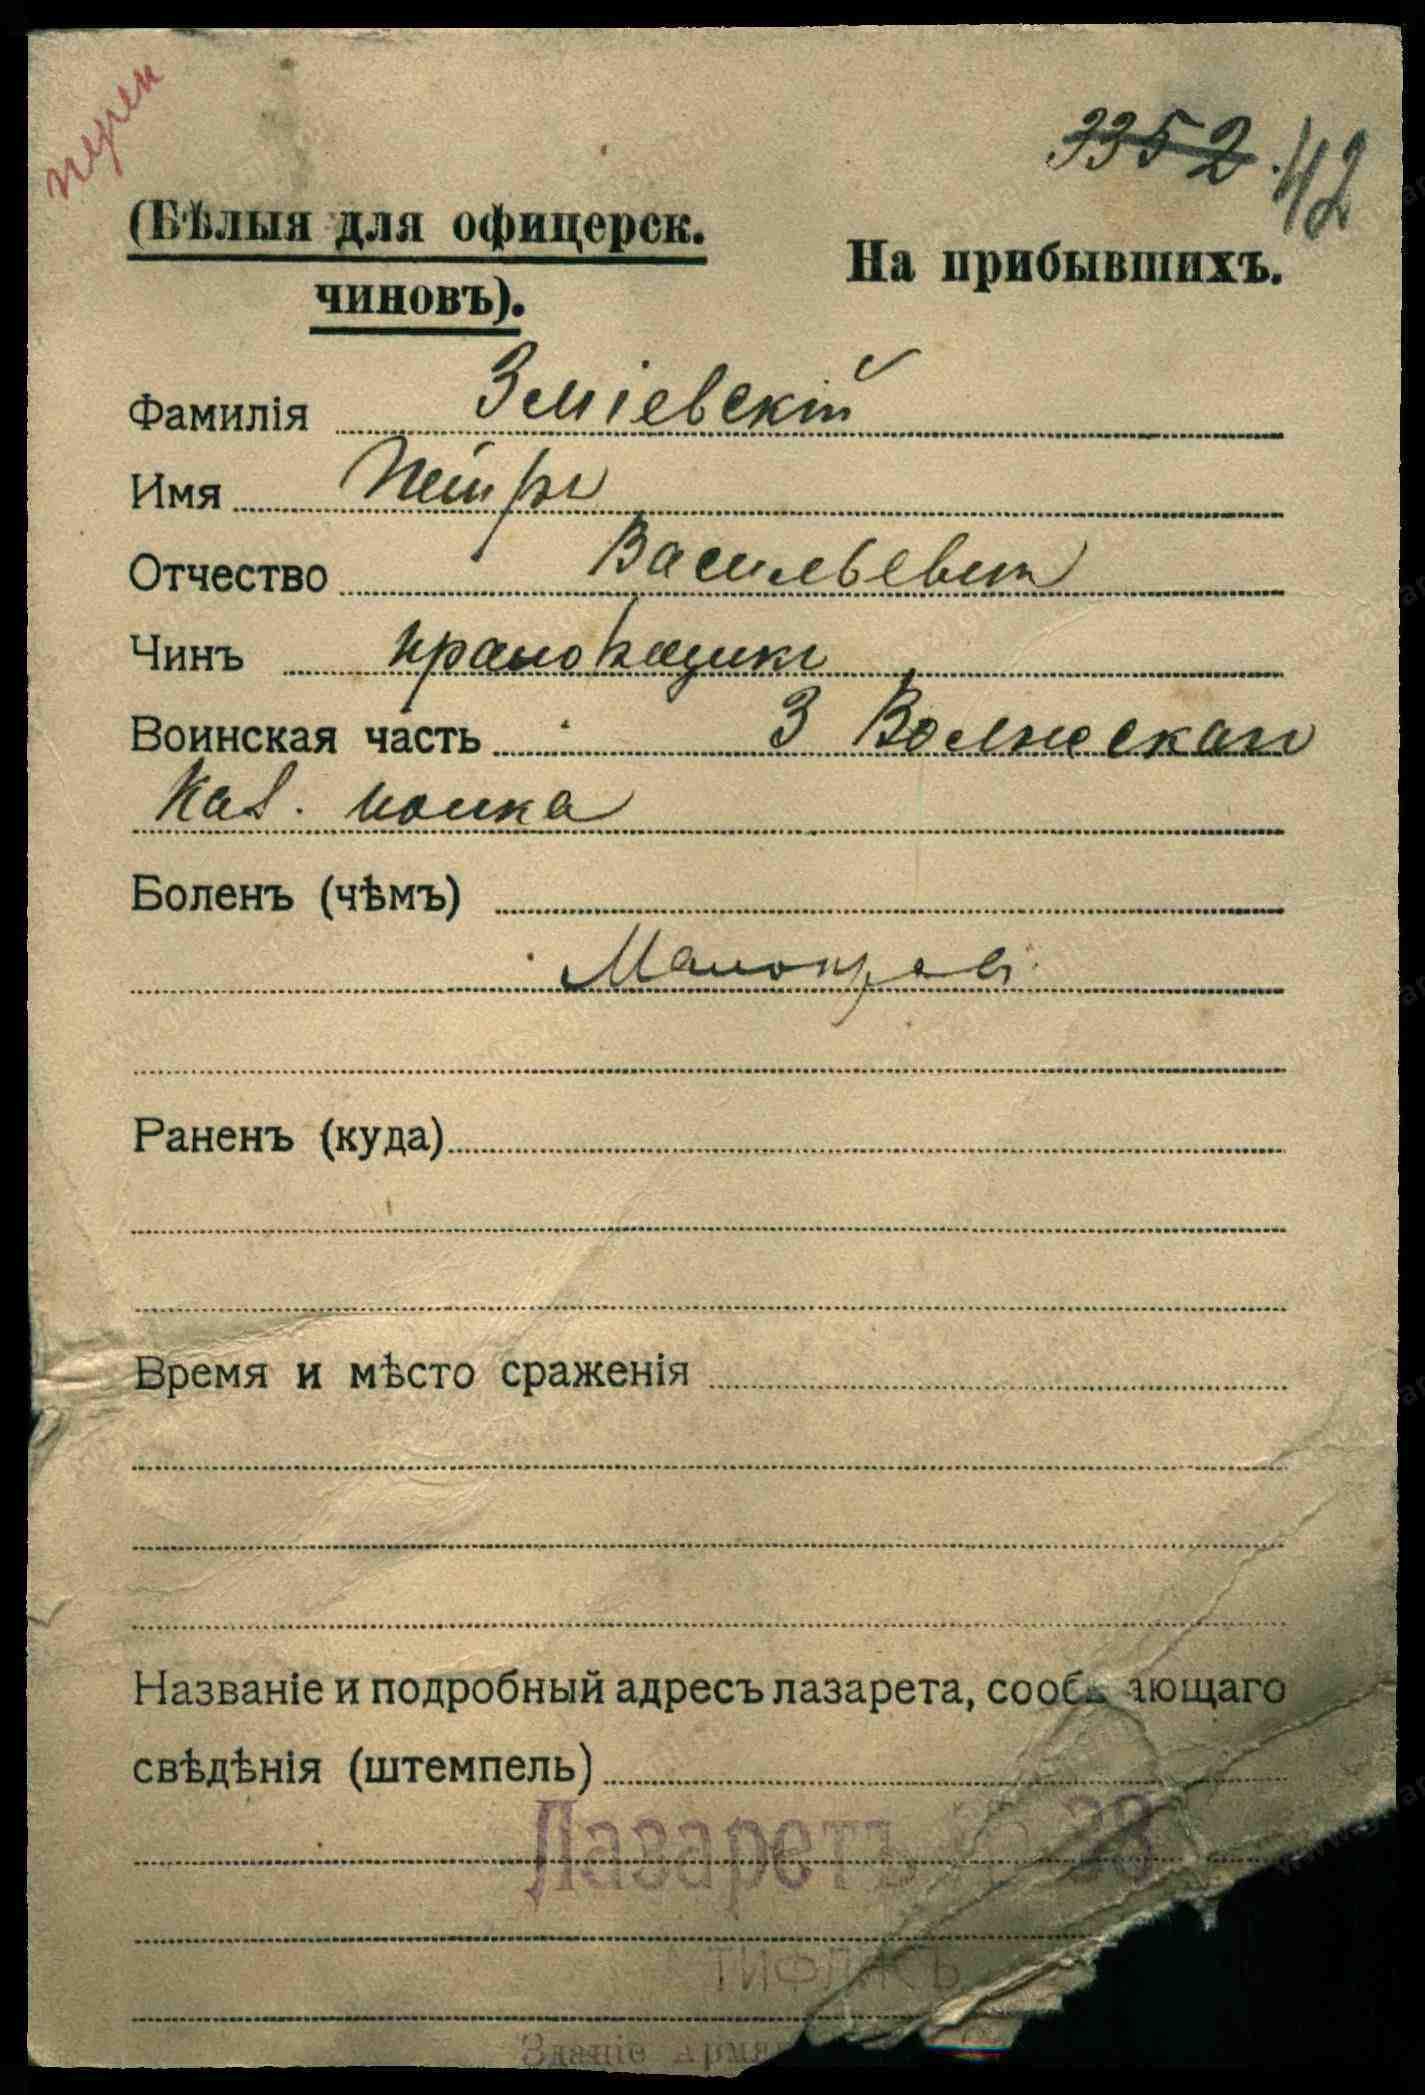 перен
3352. 42
(Бѣлыя для офицерск.
чиновъ).
На прибывшихъ.
Фамилія Зміевскій
Имя Петръ
Отчество Васильевич
Чинъ прапорщикъ
Воинская часть 3 Волжскаго
Каз. полка
Боленъ (чѣмъ)
Малокров.
Раненъ (куда)
Время и мѣсто сраженія
Названіе и подробный адресъ лазарета, сооб ающаго
свѣдѣнія (штемпель)
Лазаретъ № 38
ТИФЛИСЪ
Зданіе Арм